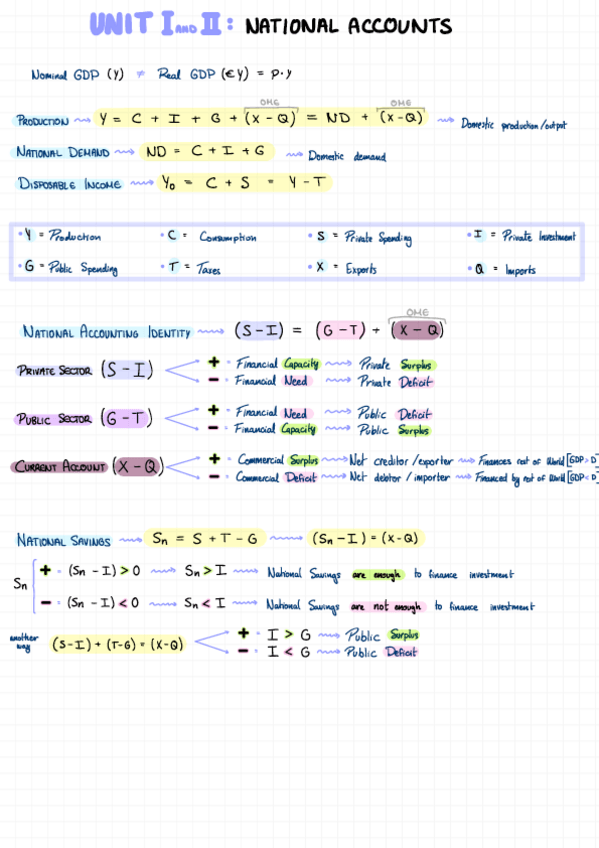 UNIT I AND II: NATIONAL ACCOUNTS
Nominal GDP (Y) ≠ Real GDP (€Y) = P·y
OMG OMG
PRODUCTION Y = C + I + G + (X-Q) = ND + (X-Q) Domestic production/output
NATIONAL DEMAND ND = C + I + G Domestic demand
DISPOSABLE INCOME Y₀ = C + S = Y - T
• Y = Production • C = Consumption • S = Private Spending • I = Private Investment
• G = Public Spending • T = Taxes • X = Exports • Q = Imports
OME
NATIONAL ACCOUNTING IDENTITY (S-I) = (G-T) + (X-Q)
PRIVATE SECTOR (S-I)
+ = Financial Capacity Private Surplus
- = Financial Need Private Deficit
PUBLIC SECTOR (G-T)
+ = Financial Need Public Deficit
- = Financial Capacity Public Surplus
CURRENT ACCOUNT (X-Q)
+ = Commercial Surplus Net creditor/exporter Finances rest of World [GDP > D]
- = Commercial Deficit Net debtor/importer Financed by rest of World [GDP < D]
NATIONAL SAVINGS Sn = S + T - G (Sn-I) = (X-Q)
Sn
+ = (Sn-I) > 0 Sn > I National Savings are enough to finance investment
- = (Sn-I) < 0 Sn < I National Savings are not enough to finance investment
another way (S-I) + (T-G) = (X-Q)
+ = I > G Public Surplus
- = I < G Public Deficit